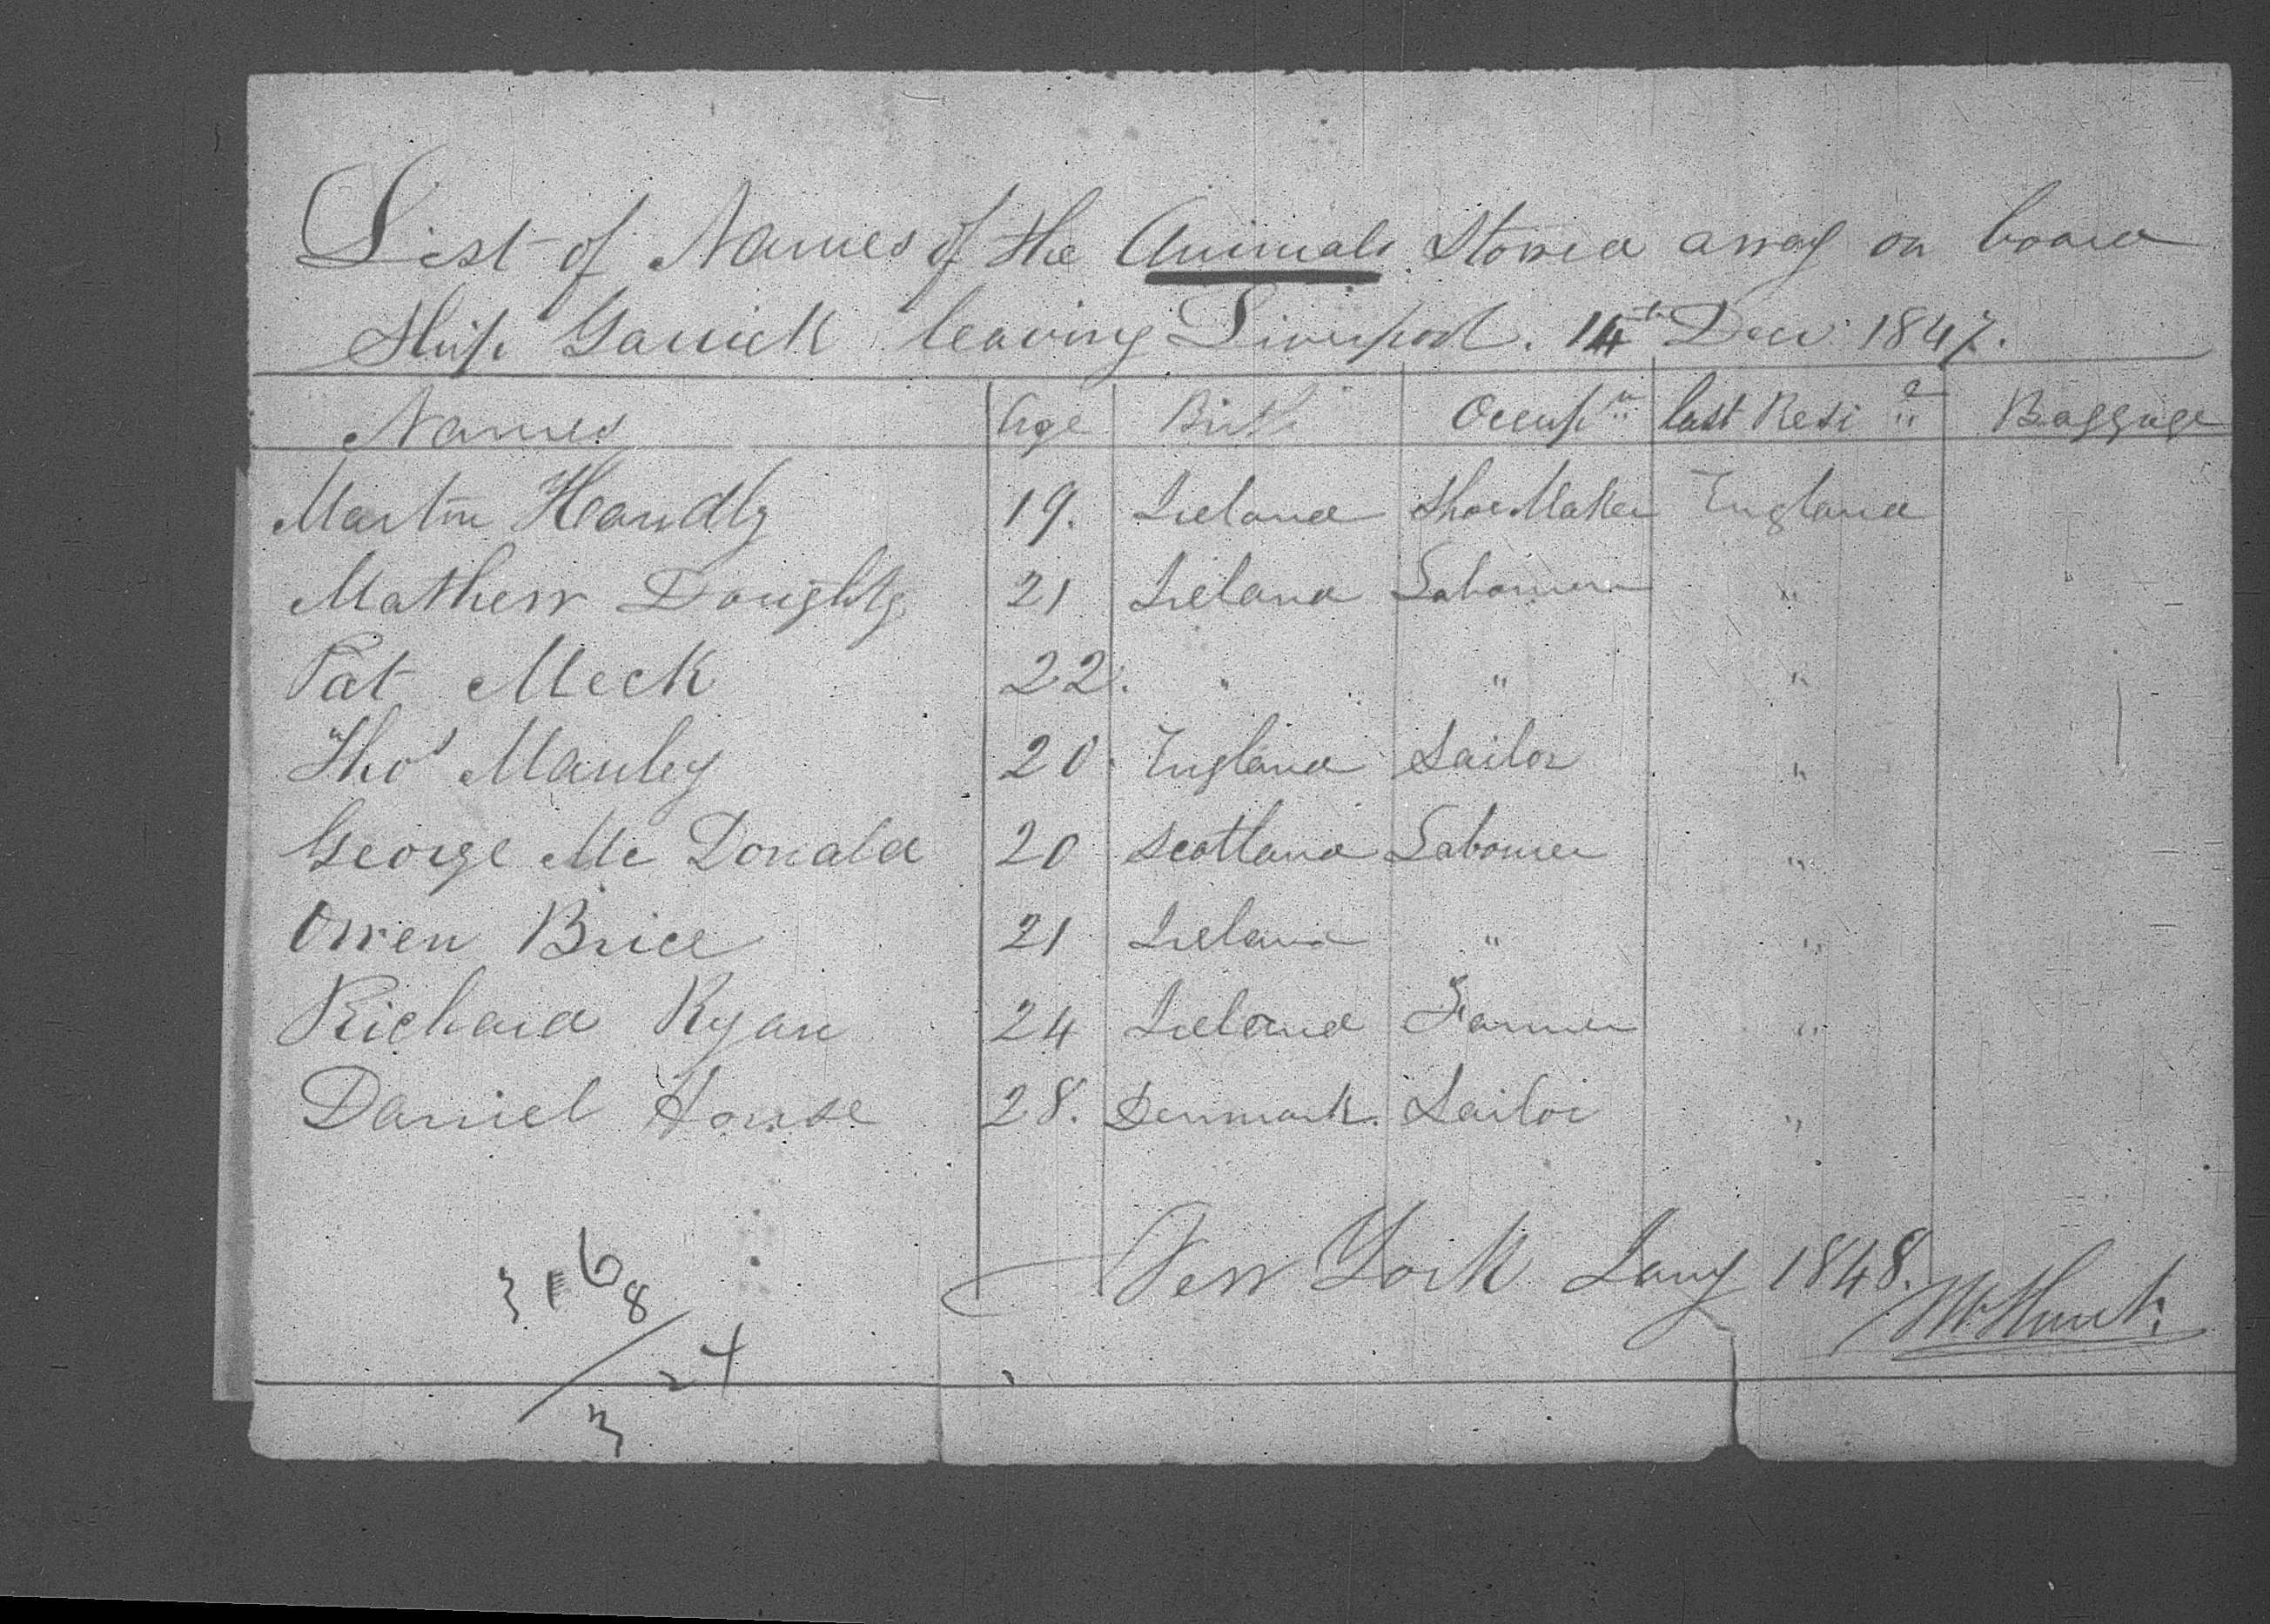 List of Names of the Animals Stowed away on board
Ship Garrick leaving Liverpool. 14th Decr 1847.
Names Age Birth Occupn last Resie Baggage
Martin Handly 19. Ireland Shoe Maker England
Mathew Doughty 21 Ireland Labourer "
Pat Meck 22. " " "
Thos Manley 20. England Sailor "
George Mc Donald 20 Scotland Labourer "
Owen Brice 21 Ireland " "
Richard Ryan 24 Ireland Farmer "
Daniel House 28. Denmark. Sailor "
New York Jany 1848.
8
24
3